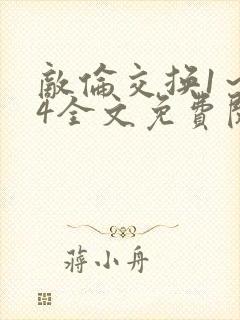 敵倫交换1~
4全文免費閱
蔣小舟